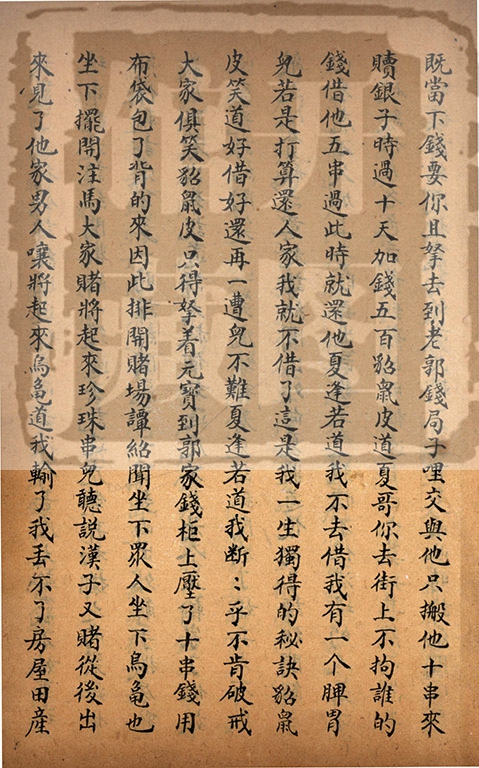 既當下錢要你且拏去到老郭錢局子哩交與他只搬他十串來
贖銀子時過十天加錢五百貂鼠皮道夏哥你去街上不拘誰的
錢借他五串過此時就還他夏逢若道我不去借我有一个脾胃
兒若是打算還人家我就不借了這是我一生獨得的秘訣貂鼠
皮笑道好借好還再一遭兒不難夏逢若道我断:乎不肯破戒
大家俱笑貂鼠皮只得拏着元寶到郭家錢柜上壓了十串錢用
布袋包了背的來因此排開賭場譚紹聞坐下眾人坐下烏龜也
坐下擺開注馬大家賭將起來珍珠串兒聽說漢子又賭從後出
來見了他家男人嚷將起來烏龜道我輸了我丟不了房屋田產